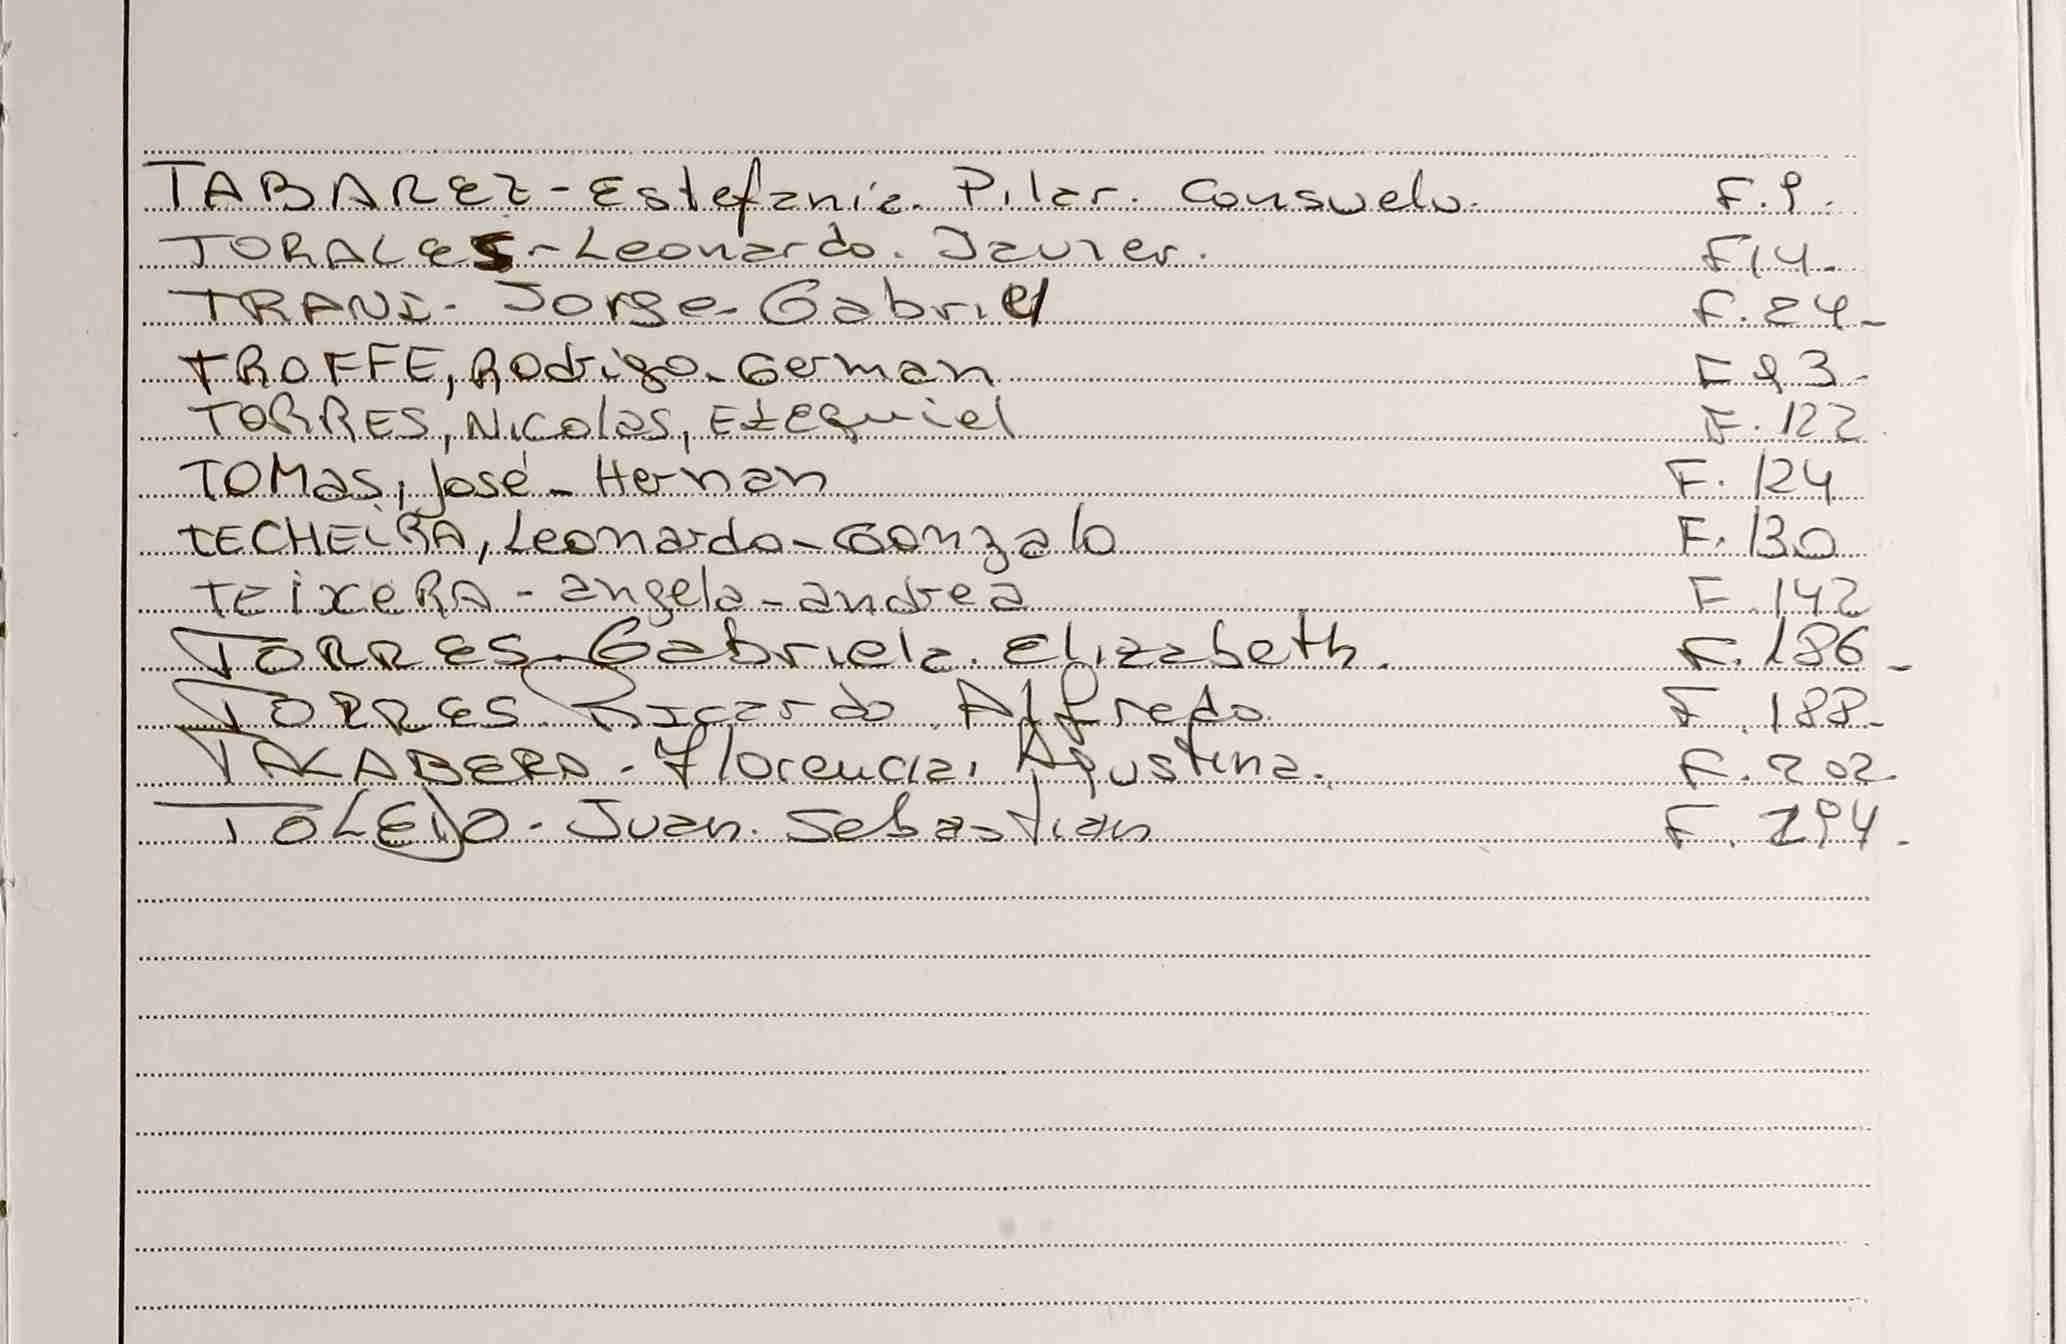 TABAREZ - Estefania. Pilar. Consuelo. F. 9.
TORALES - Leonardo. Javier. F 14.
TRANI - Jorge - Gabriel F. 24 -
TROFFE, Rodrigo - German F 93 -
TORRES, Nicolas, EzEquiel F. 122
TOMas, José - Hernan F. 124
TECHEiRA, Leonardo - Gonzalo F. 130
TEixeRA - angela - andrea F. 142
TORRES - Gabriela. Elizabeth. F. 186 -
TORRES. Ricardo. Alfredo F. 188 -
TALABERA - Florencia. Agustina. F. 202.
TOLEDO - Juan. Sebastian F. 294.